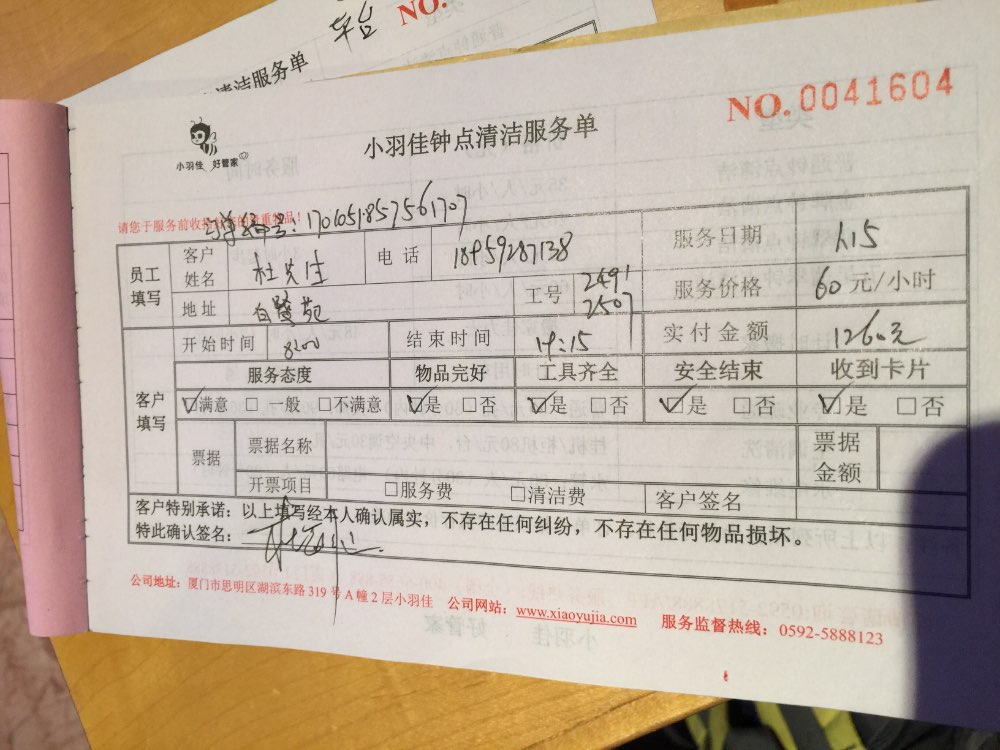 平台
NO.
清洁服务单
NO.0041604
小羽佳 好管家
小羽佳钟点清洁服务单
请您于服务前收
编号：1701051857561707
员工填写
客户姓名
杜先生
电话
18959287138
服务日期
1.15
地址
白鹭苑
工号
2491
2507
服务价格
60元/小时
客户填写
开始时间
8:00
结束时间
14:15
实付金额
1260元
服务态度
物品完好
工具齐全
安全结束
收到卡片
☑满意 □一般 □不满意
☑是 □否
☑是 □否
☑是 □否
☑是 □否
票据
票据名称
票据金额
开票项目
□服务费 □清洁费
客户签名
客户特别承诺：以上填写经本人确认属实，不存在任何纠纷，不存在任何物品损坏。
特此确认签名：
公司地址：厦门市思明区湖滨东路 319 号 A 幢 2 层小羽佳 公司网站：www.xiaoyujia.com 服务监督热线：0592-5888123